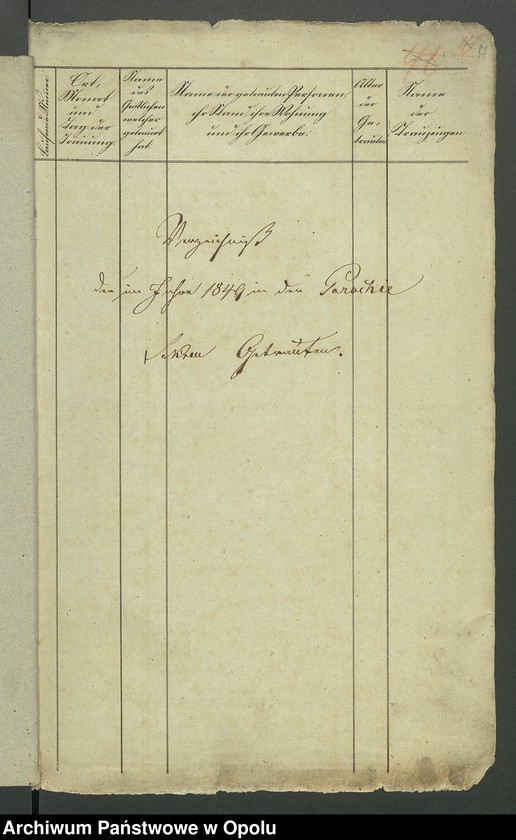 Laufende Numer.
Ort,
Monat
und
Tag der
Trauung.
Name
des
Geistlichen
welcher
getraut
hat.
Name der getrauten Personen,
ihr Stand, ihre Wohnung
und ihr Gewerbe.
Alter
der
Ge,
trauten
Name
der
Trauzeugen
Verzeichniß
der im Jahre 1849 in der Parochie
Getrauten.
Archiwum Państwowe w Opolu